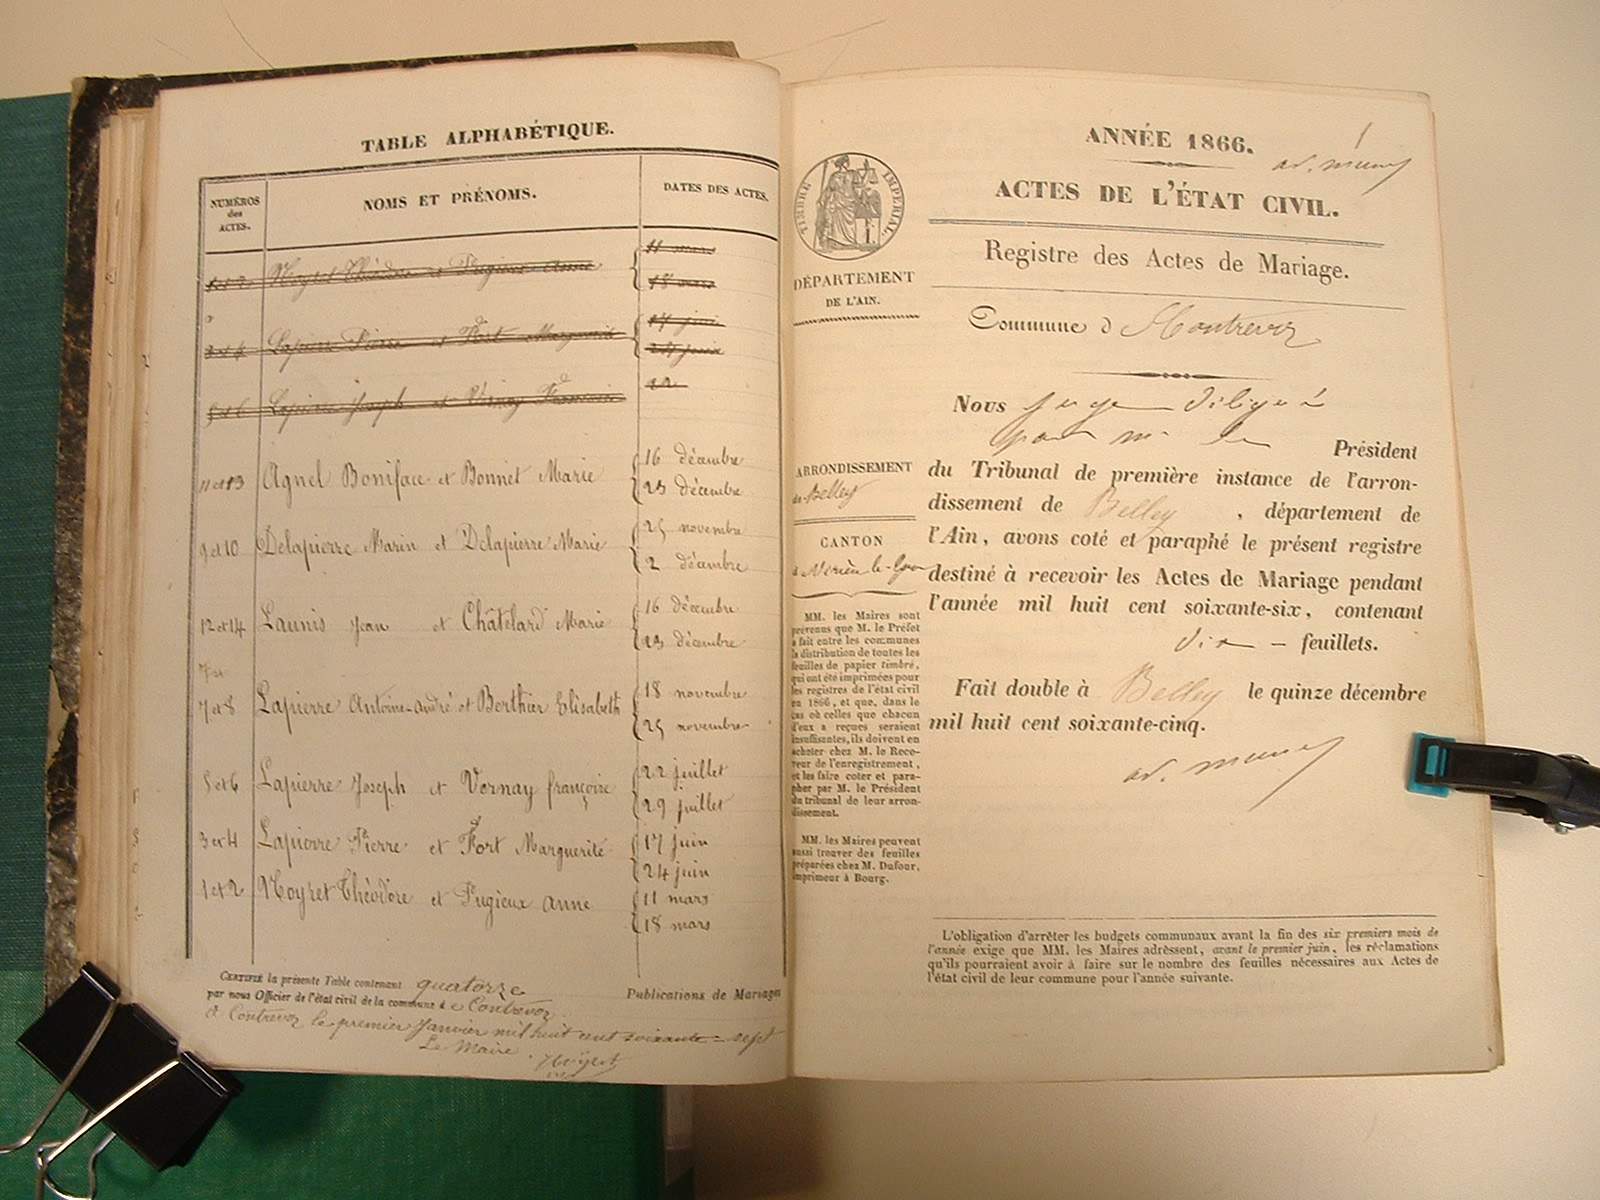 TABLE ALPHABÉTIQUE.
NUMÉROS des ACTES. NOMS ET PRÉNOMS. DATES DES ACTES.
1 et 2 Moyret Théodore et Pugieux Anne 11 mars
18 mars
3 et 4 Lapierre Pierre et Fort Marguerite 17 juin
24 juin
5 et 6 Lapierre Joseph et Vernay Françoise 22
11 et 13 Agnel Boniface et Bonnet Marie 16 décembre
23 décembre
9 et 10 Delapierre Marin et Delapierre Marie 25 novembre
2 décembre
12 et 14 Launis Jean et Châtelard Marie 16 décembre
23 décembre
7 et 8 Lapierre Antoine-André et Berthier Elisabeth 18 novembre
25 novembre
5 et 6 Lapierre Joseph et Vernay françoise 22 juillet
29 juillet
3 et 4 Lapierre Pierre et Fort Marguerite 17 juin
24 juin
1 et 2 Moyret Théodore et Pugieux Anne 11 mars
18 mars
CERTIFIÉ la présente Table contenant quatorze Publications de Mariages
par nous Officier de l'état civil de la commune de Contrevoz
à Contrevoz le premier Janvier mil huit cent soixante-sept
Le Maire
Moyret
1
ANNÉE 1866.
TIMBRE IMPÉRIAL.
ACTES DE L'ÉTAT CIVIL.
Registre des Actes de Mariage.
DÉPARTEMENT
DE L'AIN.
Commune d Contrevoz
Nous juge délégué
pour Mr le Président
du Tribunal de première instance de l'arron-
dissement de Belley, département de
l'Ain, avons coté et paraphé le présent registre
destiné à recevoir les Actes de Mariage pendant
l'année mil huit cent soixante-six, contenant
dix feuillets.
Fait double à Belley le quinze décembre
mil huit cent soixante-cinq.
ARRONDISSEMENT
de Belley
CANTON
de Virieu-le-Grand
MM. les Maires sont
prévenus que M. le Préfet
a fait entre les communes
la distribution de toutes les
feuilles de papier timbré,
qui ont été imprimées pour
les registres de l'état civil
en 1866, et que, dans le
cas où celles que chacun
d'eux a reçues seraient
insuffisantes, ils doivent en
acheter chez M. le Rece-
veur de l'enregistrement,
et les faire coter et para-
pher par M. le Président
du tribunal de leur arron-
dissement.
MM. les Maires peuvent
aussi trouver des feuilles
préparées chez M. Dufour,
imprimeur à Bourg.
L'obligation d'arrêter les budgets communaux avant la fin des six premiers mois de
l'année exige que MM. les Maires adressent, avant le premier juin, les réclamations
qu'ils pourraient avoir à faire sur le nombre des feuilles nécessaires aux Actes de
l'état civil de leur commune pour l'année suivante.